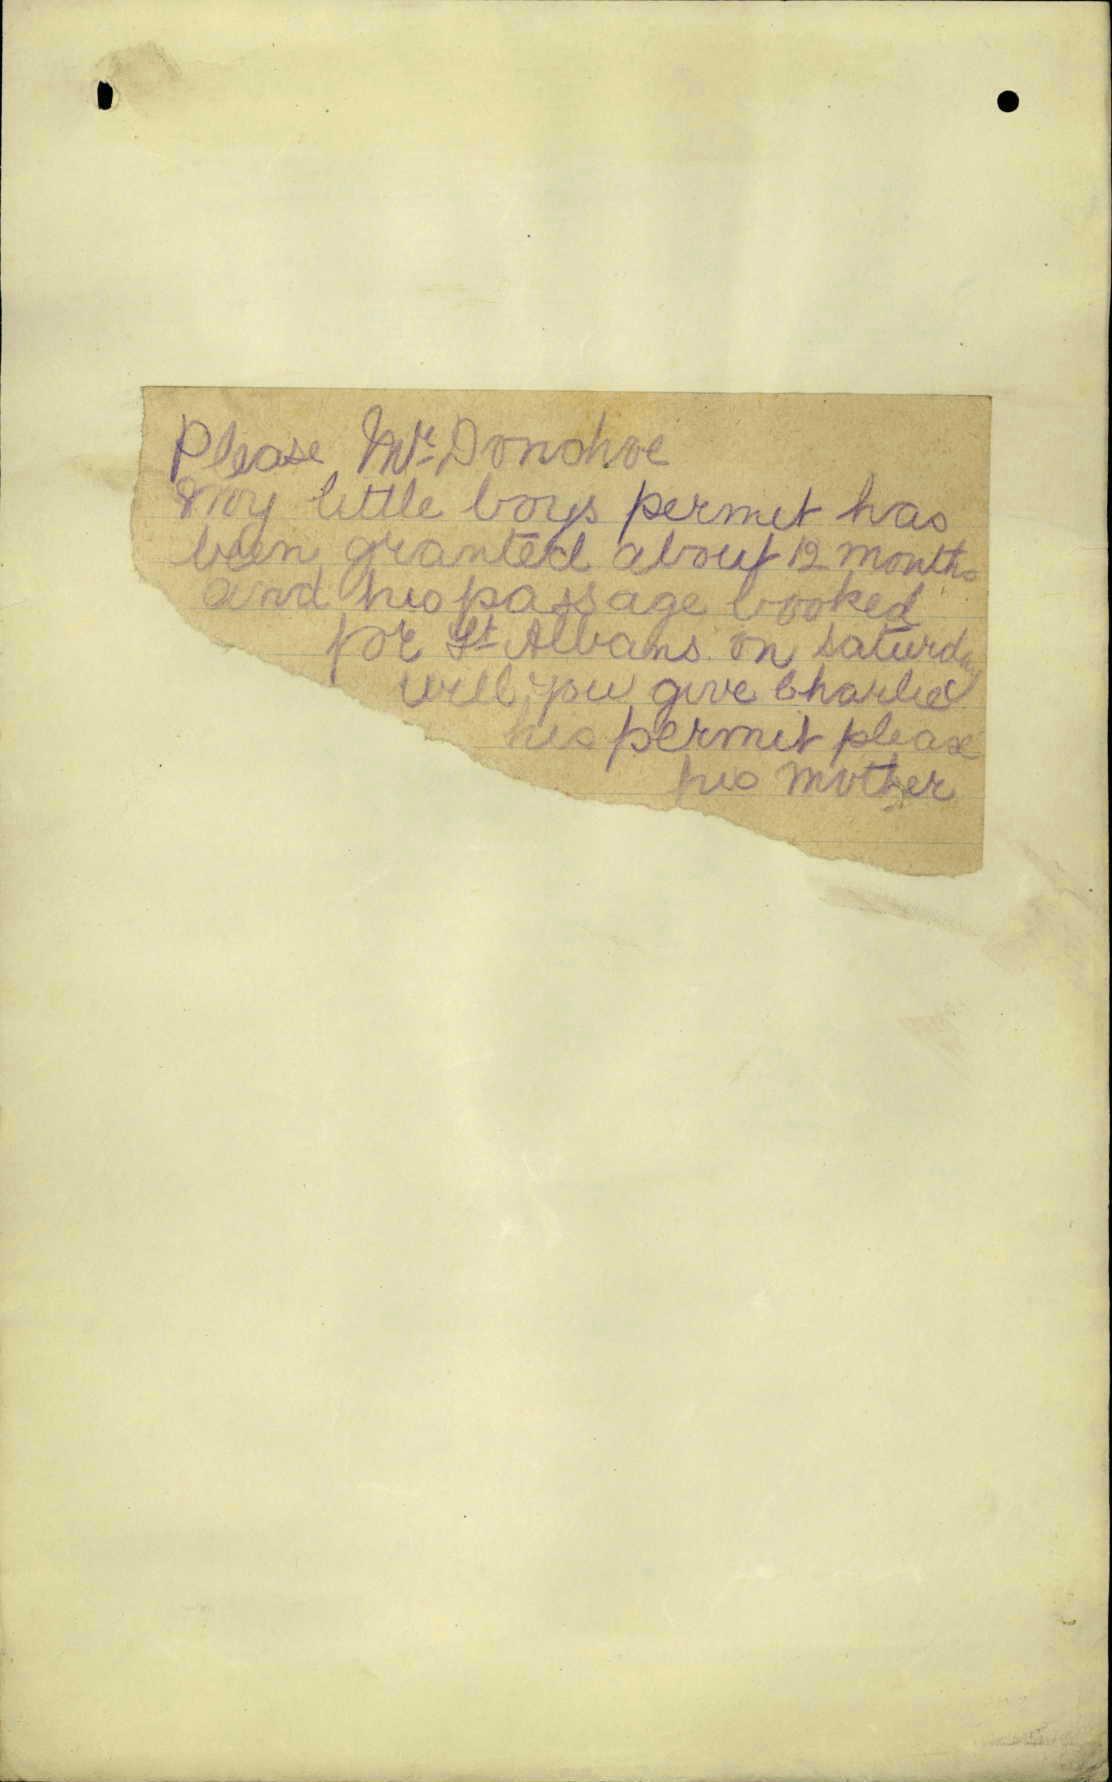 Please Mr. Donohoe
My little boys permit has
been granted about 12 months
and his passage booked
for St Albans on Saturday
will you give Charlie
his permit please
his Mother